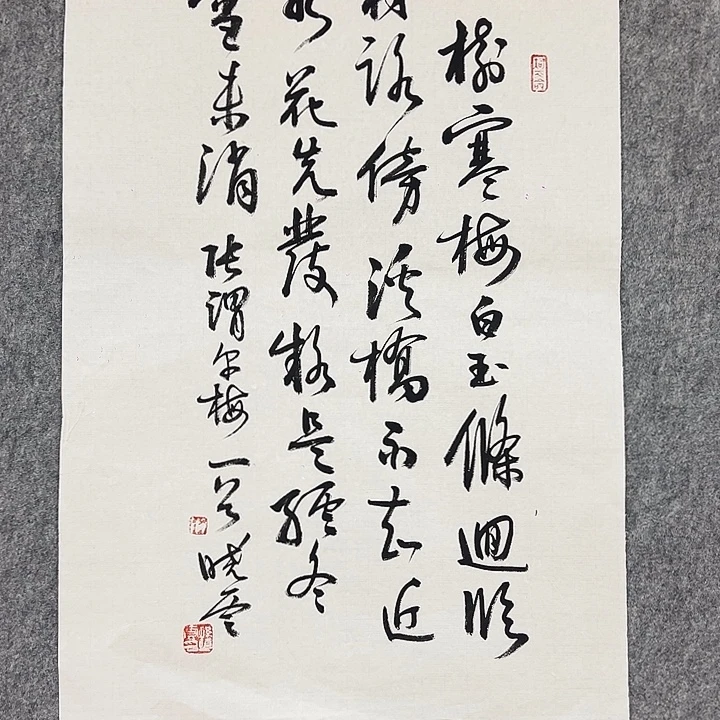 樹寒梅白玉條迴臨
村路傍溪橋不知近
水花先發疑是經冬
雪未消 張謂早梅一首